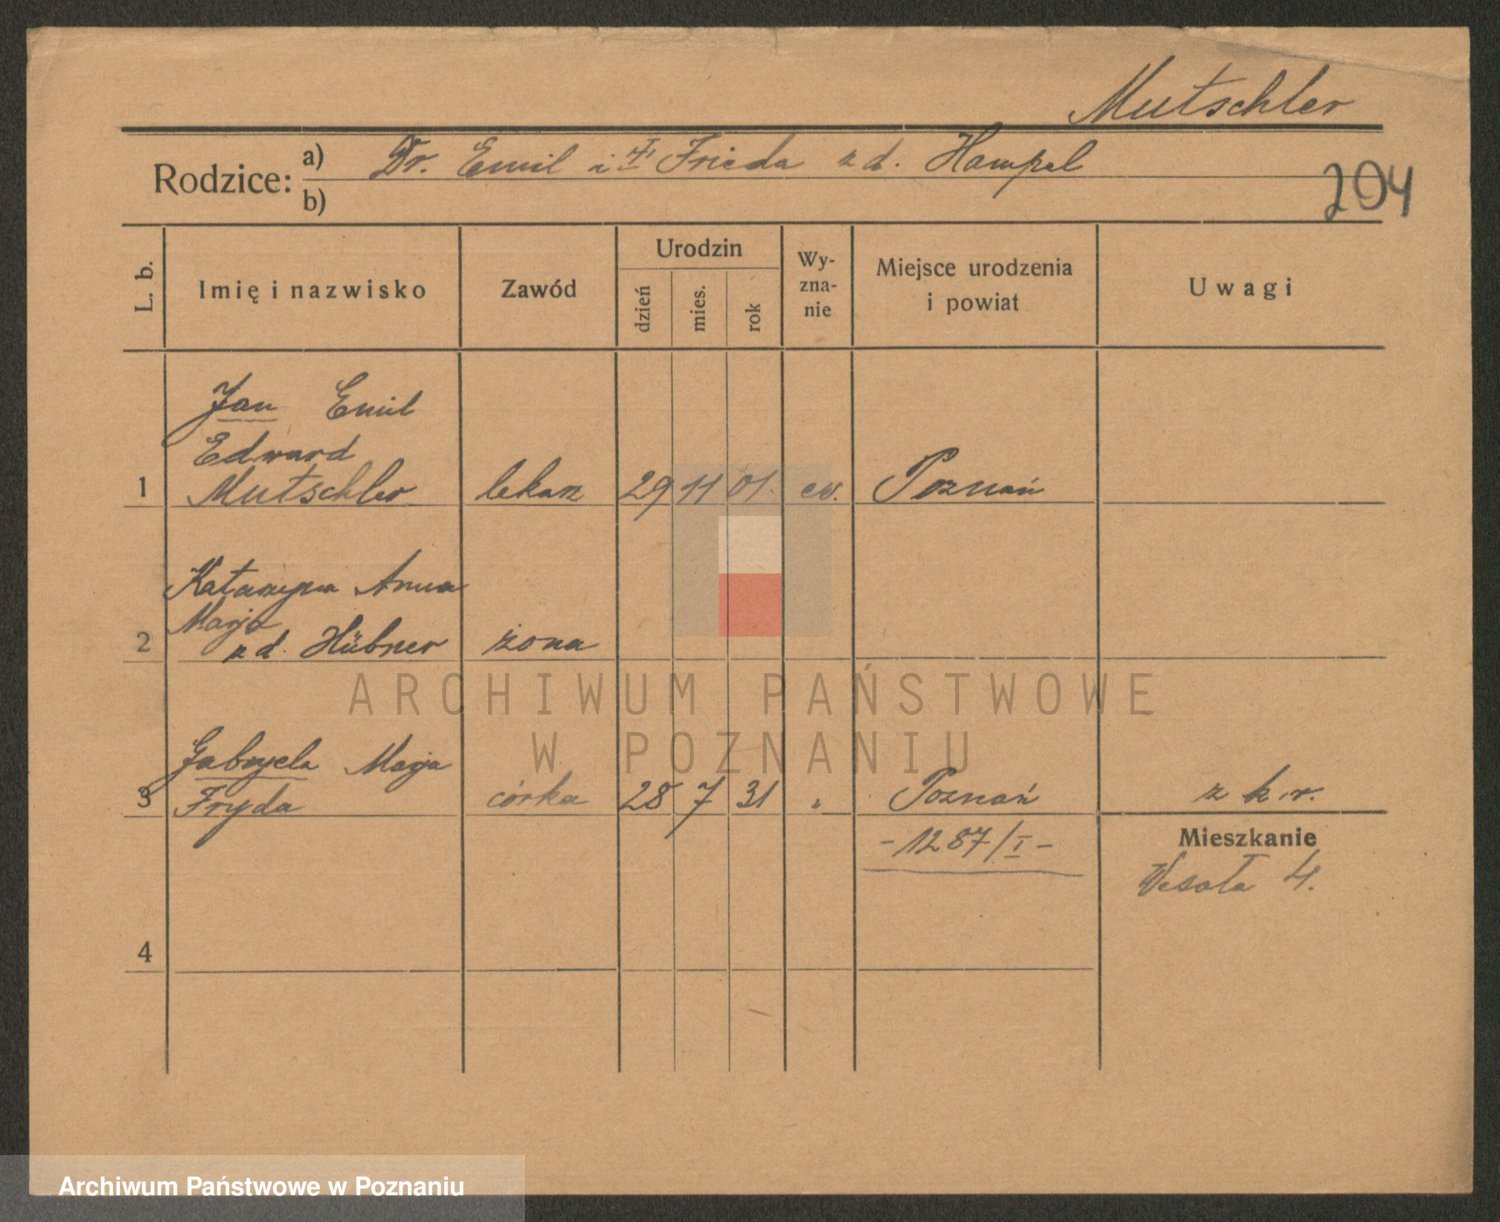 Mutschler
Rodzice: a) Dr. Emil i † Frieda z d. Hampel
b)
204
L. b.
Imię i nazwisko
Zawód
Urodzin
dzień
mies.
rok
Wy-
zna-
nie
Miejsce urodzenia
i powiat
Uwagi
Jan Emil
Edward
1 Mutschler lekarz 29 11 01. ew. Poznań
Katarzyna Anna
Marja
2 z d. Hübner żona
Gabryela Marja
3 Fryda córka 28 7 31 " Poznań z k. r.
-1287/I-
Mieszkanie
Wesoła 4.
4
ARCHIWUM PAŃSTWOWE
W POZNANIU
Archiwum Państwowe w Poznaniu